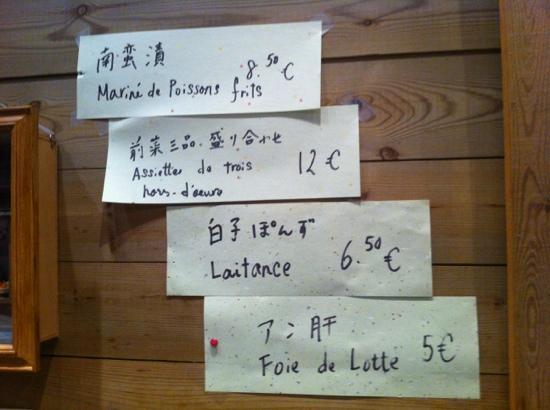 南蛮漬
Mariné de Poissons frits 8.50 €
前菜三品盛り合わせ
Assiette de trois
hors-d'oeuvre 12 €
白子ぽんず
Laitance 6.50 €
アン肝
Foie de Lotte 5 €